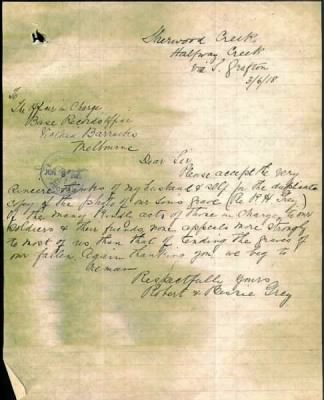 Sherwood Creek,
Halfway Creek
via S. Grafton
3/6/18
To
The Officer in Charge,
Base Records Office
Victoria Barracks
Melbourne
Dear Sir,
Please accept the very
sincere thanks of my husband & self for the duplicate
copy of the photo of our sons grave (Re R H Grey)
Of the many kindly acts of those in Charge, to our
soldiers & their friends none appeals more strongly
to most of us than that of tending the graves of
our fallen. Again thanking you we beg to
remain
Respectfully Yours
Robert & Grey